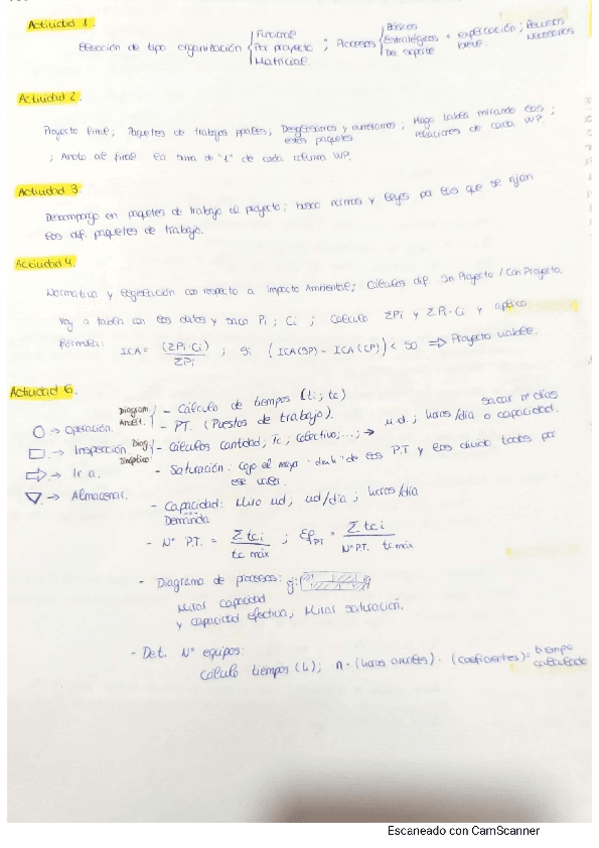 Actividad 1.
Elección de tipo organización { Funcional / Por proyecto / Matricial. ; Procesos { Básicos / Estratégicos / De soporte + explicación breve. ; Recursos necesarios
Actividad 2.
Proyecto final; Paquetes de trabajos ppales; Desglosamos y numeramos estos paquetes ; Hago tabla mirando las relaciones de cada WP. ;
; Anoto al final la suma de "1" de cada columna WP.
Actividad 3
Descompongo en paquetes de trabajo el proyecto; busco normas y leyes por los que se rijan
los dif. paquetes de trabajo.
Actividad 4.
Normativa y legislación con respecto a Impacto Ambiental; Cálculos dif. Sin Proyecto / Con Proyecto.
Voy a tabla con los datos y saco Pi ; Ci ; Calculo ΣPi y ΣPi·Ci y aplico
fórmula: ICA = (ΣPi·Ci) / ΣPi ; Si (ICA(SP) - ICA(CP)) < 50 ⇒ Proyecto viable.
Actividad 6.
Diagram. Analít. { - Cálculo de tiempos (ti; tc)
- PT. (Puestos de trabajo).
○ -> Operación.
□ -> Inspección
⇨ -> Ir a.
▽ -> Almacenar.
Diag. Sinóptico { - Cálculos cantidad; Tc; colectivo;...; → u.d.; horas/día o capacidad. sacar nº días
- Saturación: cojo el mayor de los P.T y los divido todos por ese valor.
- Capacidad: Miro ud; ud/día; horas/día
Demanda
- Nº P.T. = Σtci / tc máx ; Ef PT = Σtci / Nº P.T. tc máx
- Diagrama de procesos: ej:
Mirar capacidad
y capacidad efectiva; Mirar saturación.
- Det. Nº equipos:
Cálculo tiempos (h); n · (horas anuales) · (coeficientes) = tiempo calculado
Escaneado con CamScanner